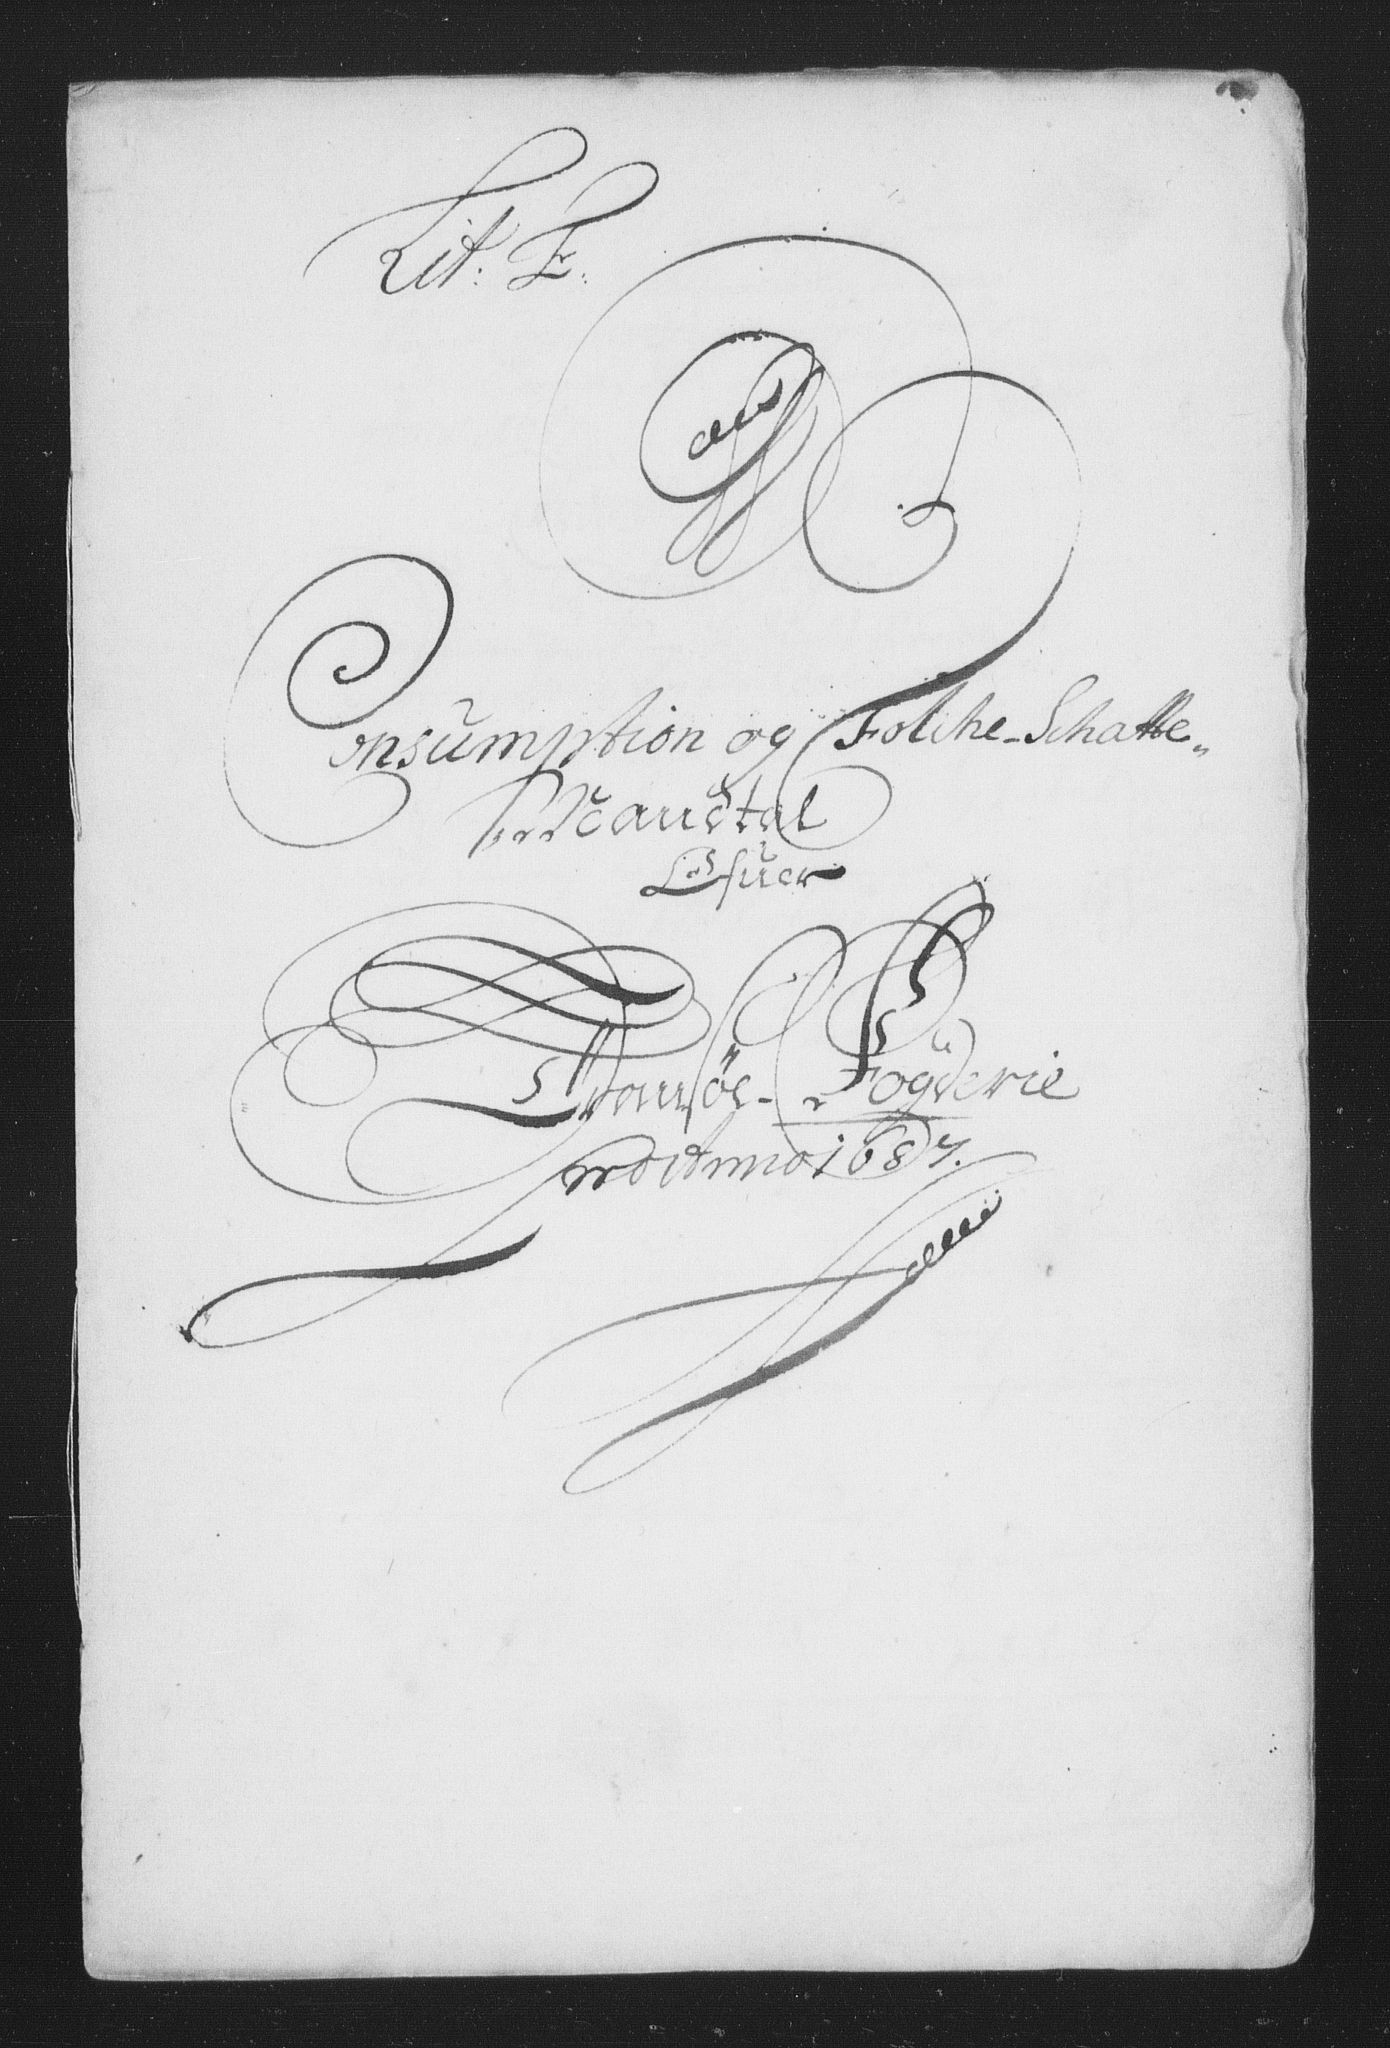 Lit: E.
Consumption og Folche-Schatte-
Mandtal
Ofuer
Tromsøe-Fögderie
Pro Anno 1687.